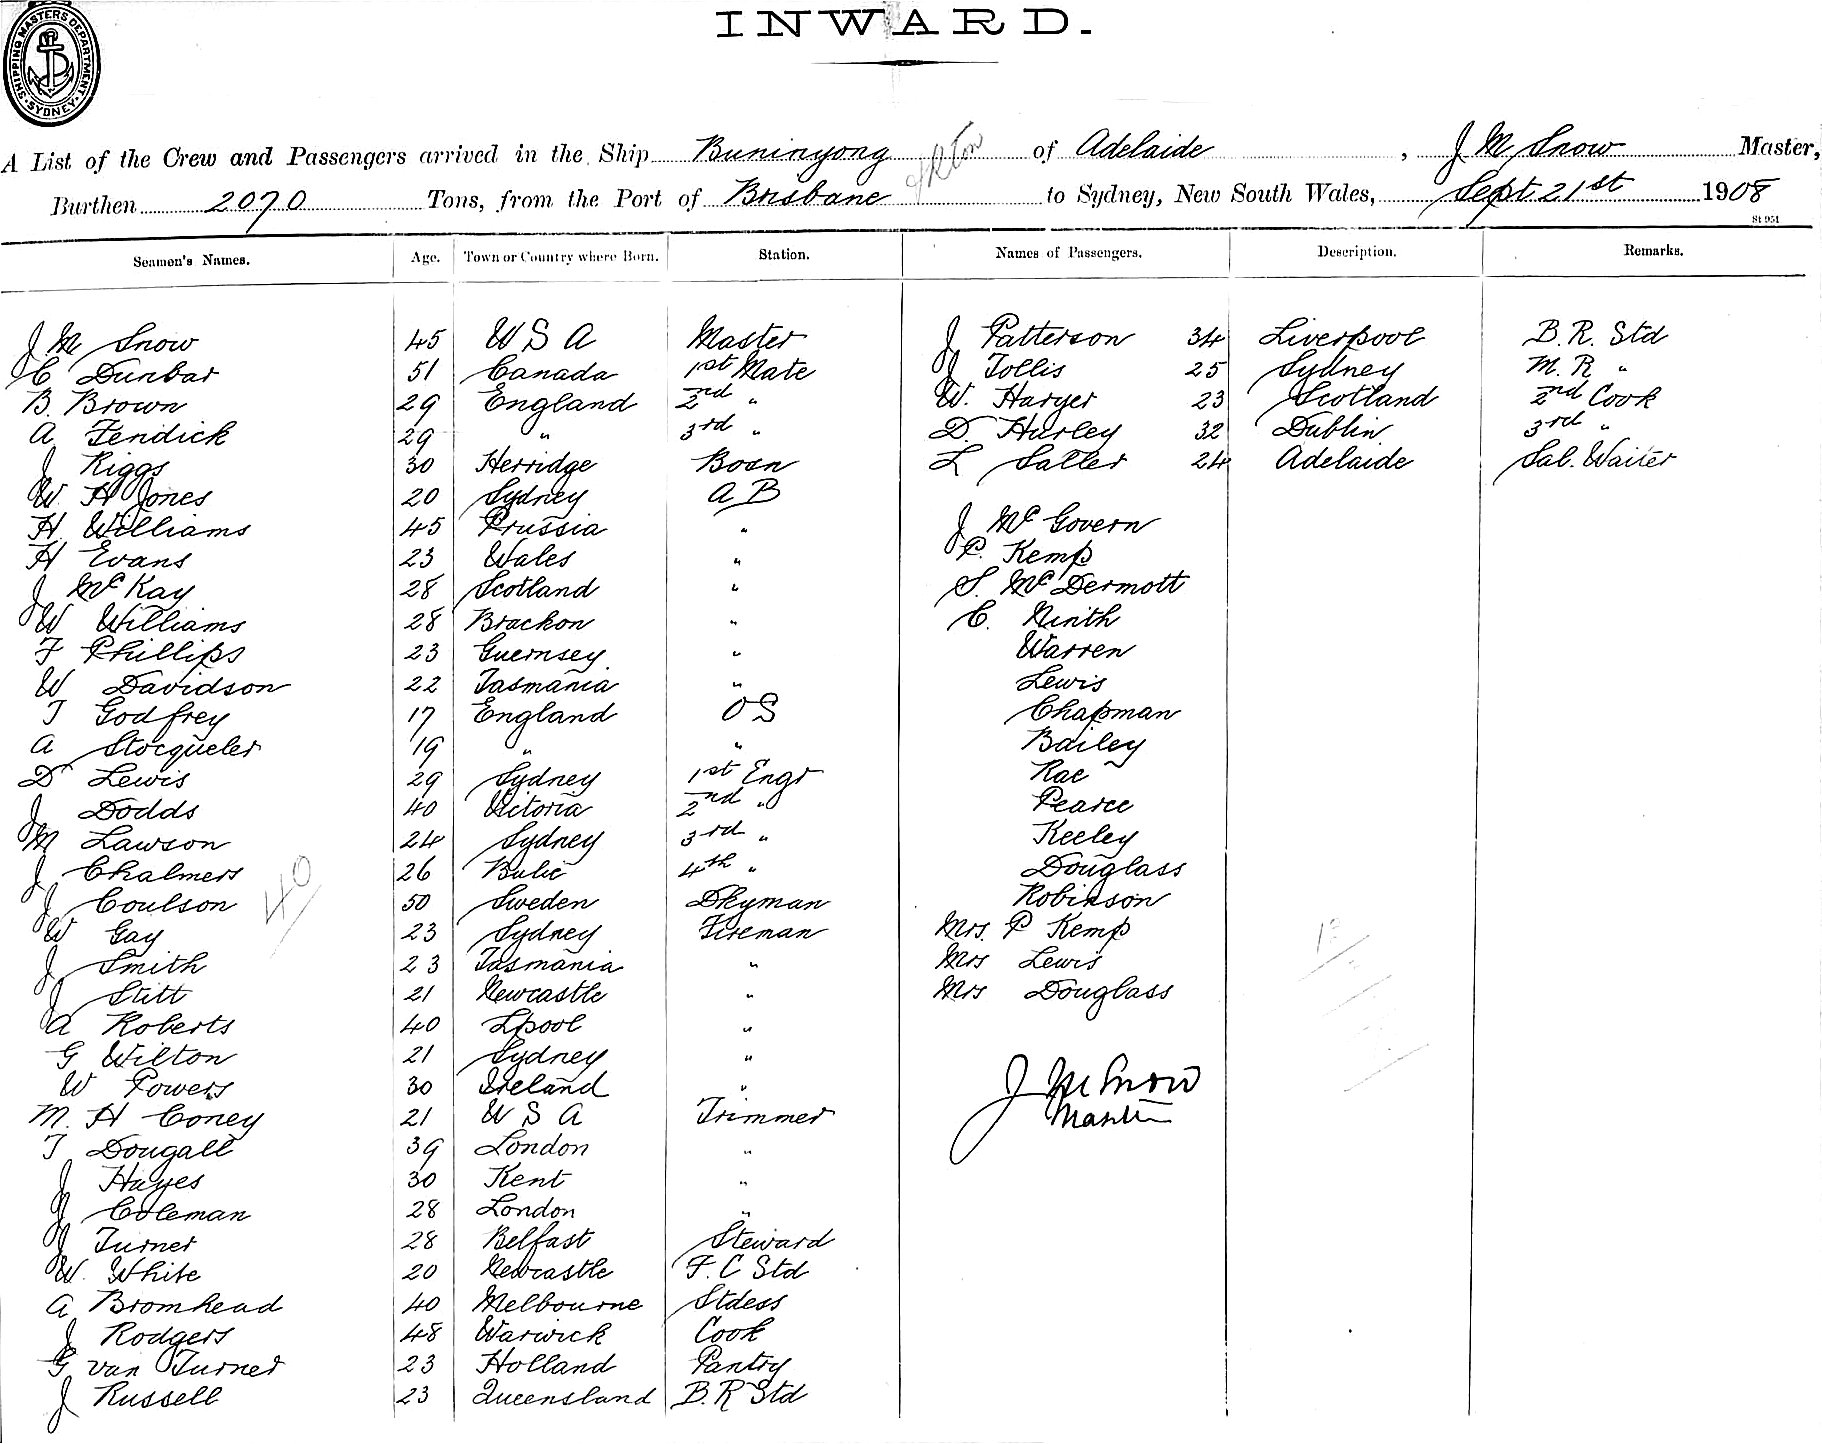 INWARD.
SHIPPING MASTERS DEPARTMENT. SYDNEY.
A List of the Crew and Passengers arrived in the Ship Buninyong of Adelaide, J M Snow Master,
Burthen 2070 Tons, from the Port of Brisbane to Sydney, New South Wales, Sept 21st 1908
St 951
Seamen's Names. Age. Town or Country where Born. Station. Names of Passengers. Description. Remarks.
J M Snow 45 U S A Master J Patterson 34 Liverpool B.R. Std
C Dunbar 51 Canada 1st Mate J Tollis 25 Sydney M.R "
B. Brown 29 England 2nd " W. Harper 23 Scotland 2nd Cook
A Fendick 29 " 3rd " D. Hurley 32 Dublin 3rd "
J Riggs 30 Herridge Bosn L Salter 24 Adelaide Sal. Waiter
W. H Jones 20 Sydney A B
H Williams 45 Prussia " J McGovern
H Evans 23 Wales " P. Kemp
J McKay 28 Scotland " S. McDermott
W Williams 28 Brackon " C. Ninith
F Phillips 23 Guernsey " Warren
W Davidson 22 Tasmania " Lewis
T Godfrey 17 England O S Chapman
A Stocqueler 19 " " Bailey
D Lewis 29 Sydney 1st Engr Rae
J Dodds 40 Victoria 2nd " Pearce
M Lawson 24 Sydney 3rd " Keeley
J Chalmers 26 Bulli 4th " Douglass
J Coulson 50 Sweden Dkyman Robinson
40
W Gay 23 Sydney Fireman Mrs. P Kemp
J Smith 23 Tasmania " Mrs Lewis
J Stitt 21 Newcastle " Mrs Douglass
A Roberts 40 Lpool "
G Wilton 21 Sydney "
W Powers 30 Ireland " J M Snow
M. H Coney 21 U S A Trimmer Master
T Dougall 39 London "
J Hayes 30 Kent "
J Coleman 28 London "
J Turner 28 Belfast Steward
W. White 20 Newcastle F. C Std
A Bromhead 40 Melbourne Stdess
J Rodgers 48 Warwick Cook
G van Turner 23 Holland Pantry
J Russell 23 Queensland B. R Std